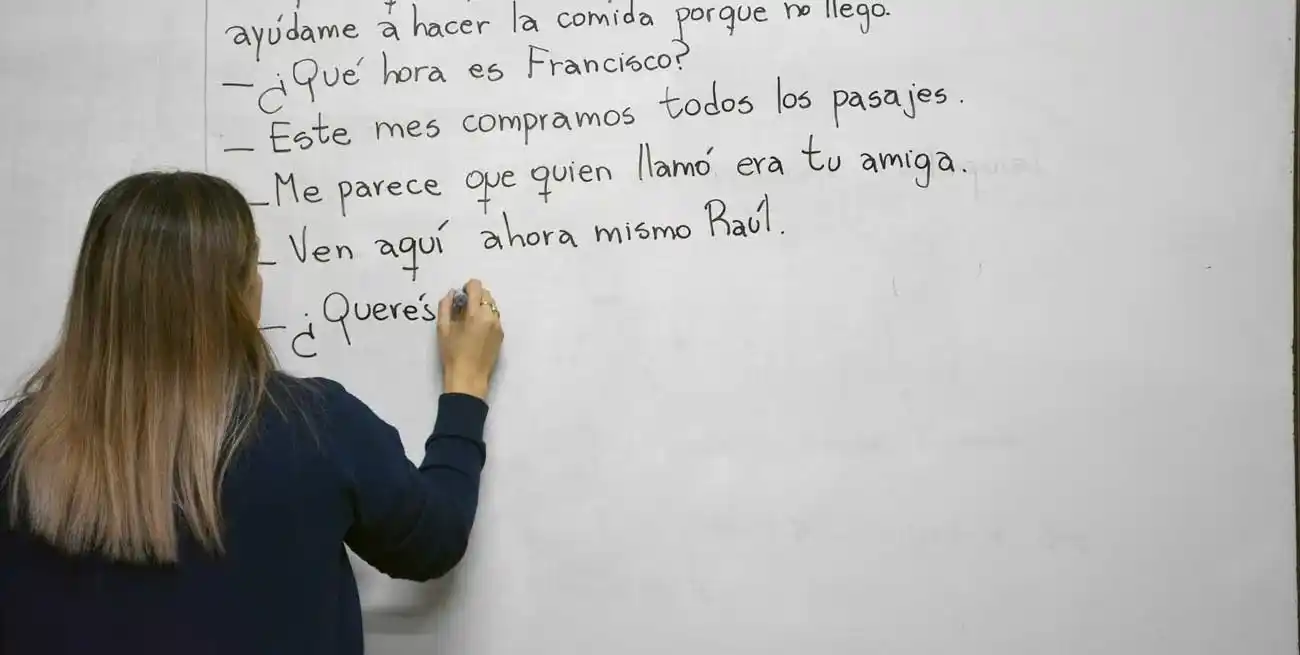 ayúdame a hacer la comida porque no llego.
– ¿Qué hora es Francisco?
– Este mes compramos todos los pasajes.
– Me parece que quien llamó era tu amiga.
– Ven aquí ahora mismo Raúl.
– ¿Querés